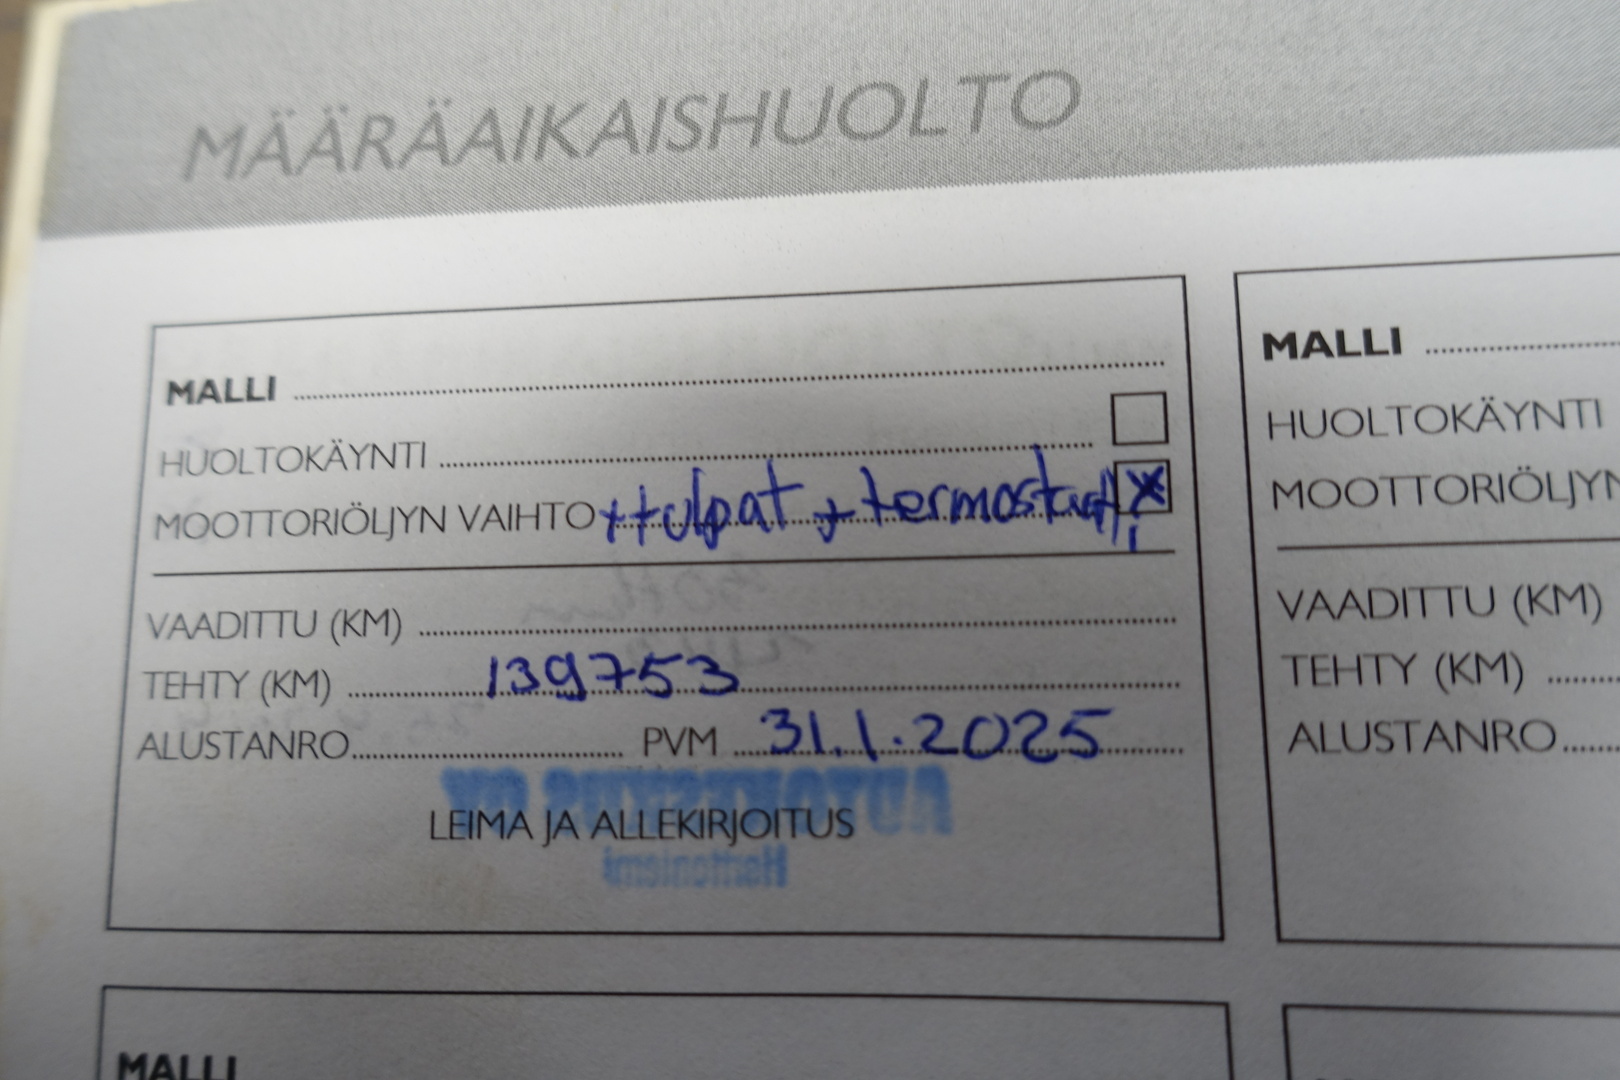 MÄÄRÄAIKAISHUOLTO
MALLI
HUOLTOKÄYNTI
MOOTTORIÖLJYN VAIHTO + tulpat + termostaatti X
VAADITTU (KM)
TEHTY (KM) 139753
ALUSTANRO PVM 31.1.2025
LEIMA JA ALLEKIRJOITUS
AUTOKESKUS OY
Herttoniemi
MALLI
HUOLTOKÄYNTI
MOOTTORIÖLJYN
VAADITTU (KM)
TEHTY (KM)
ALUSTANRO
MALLI